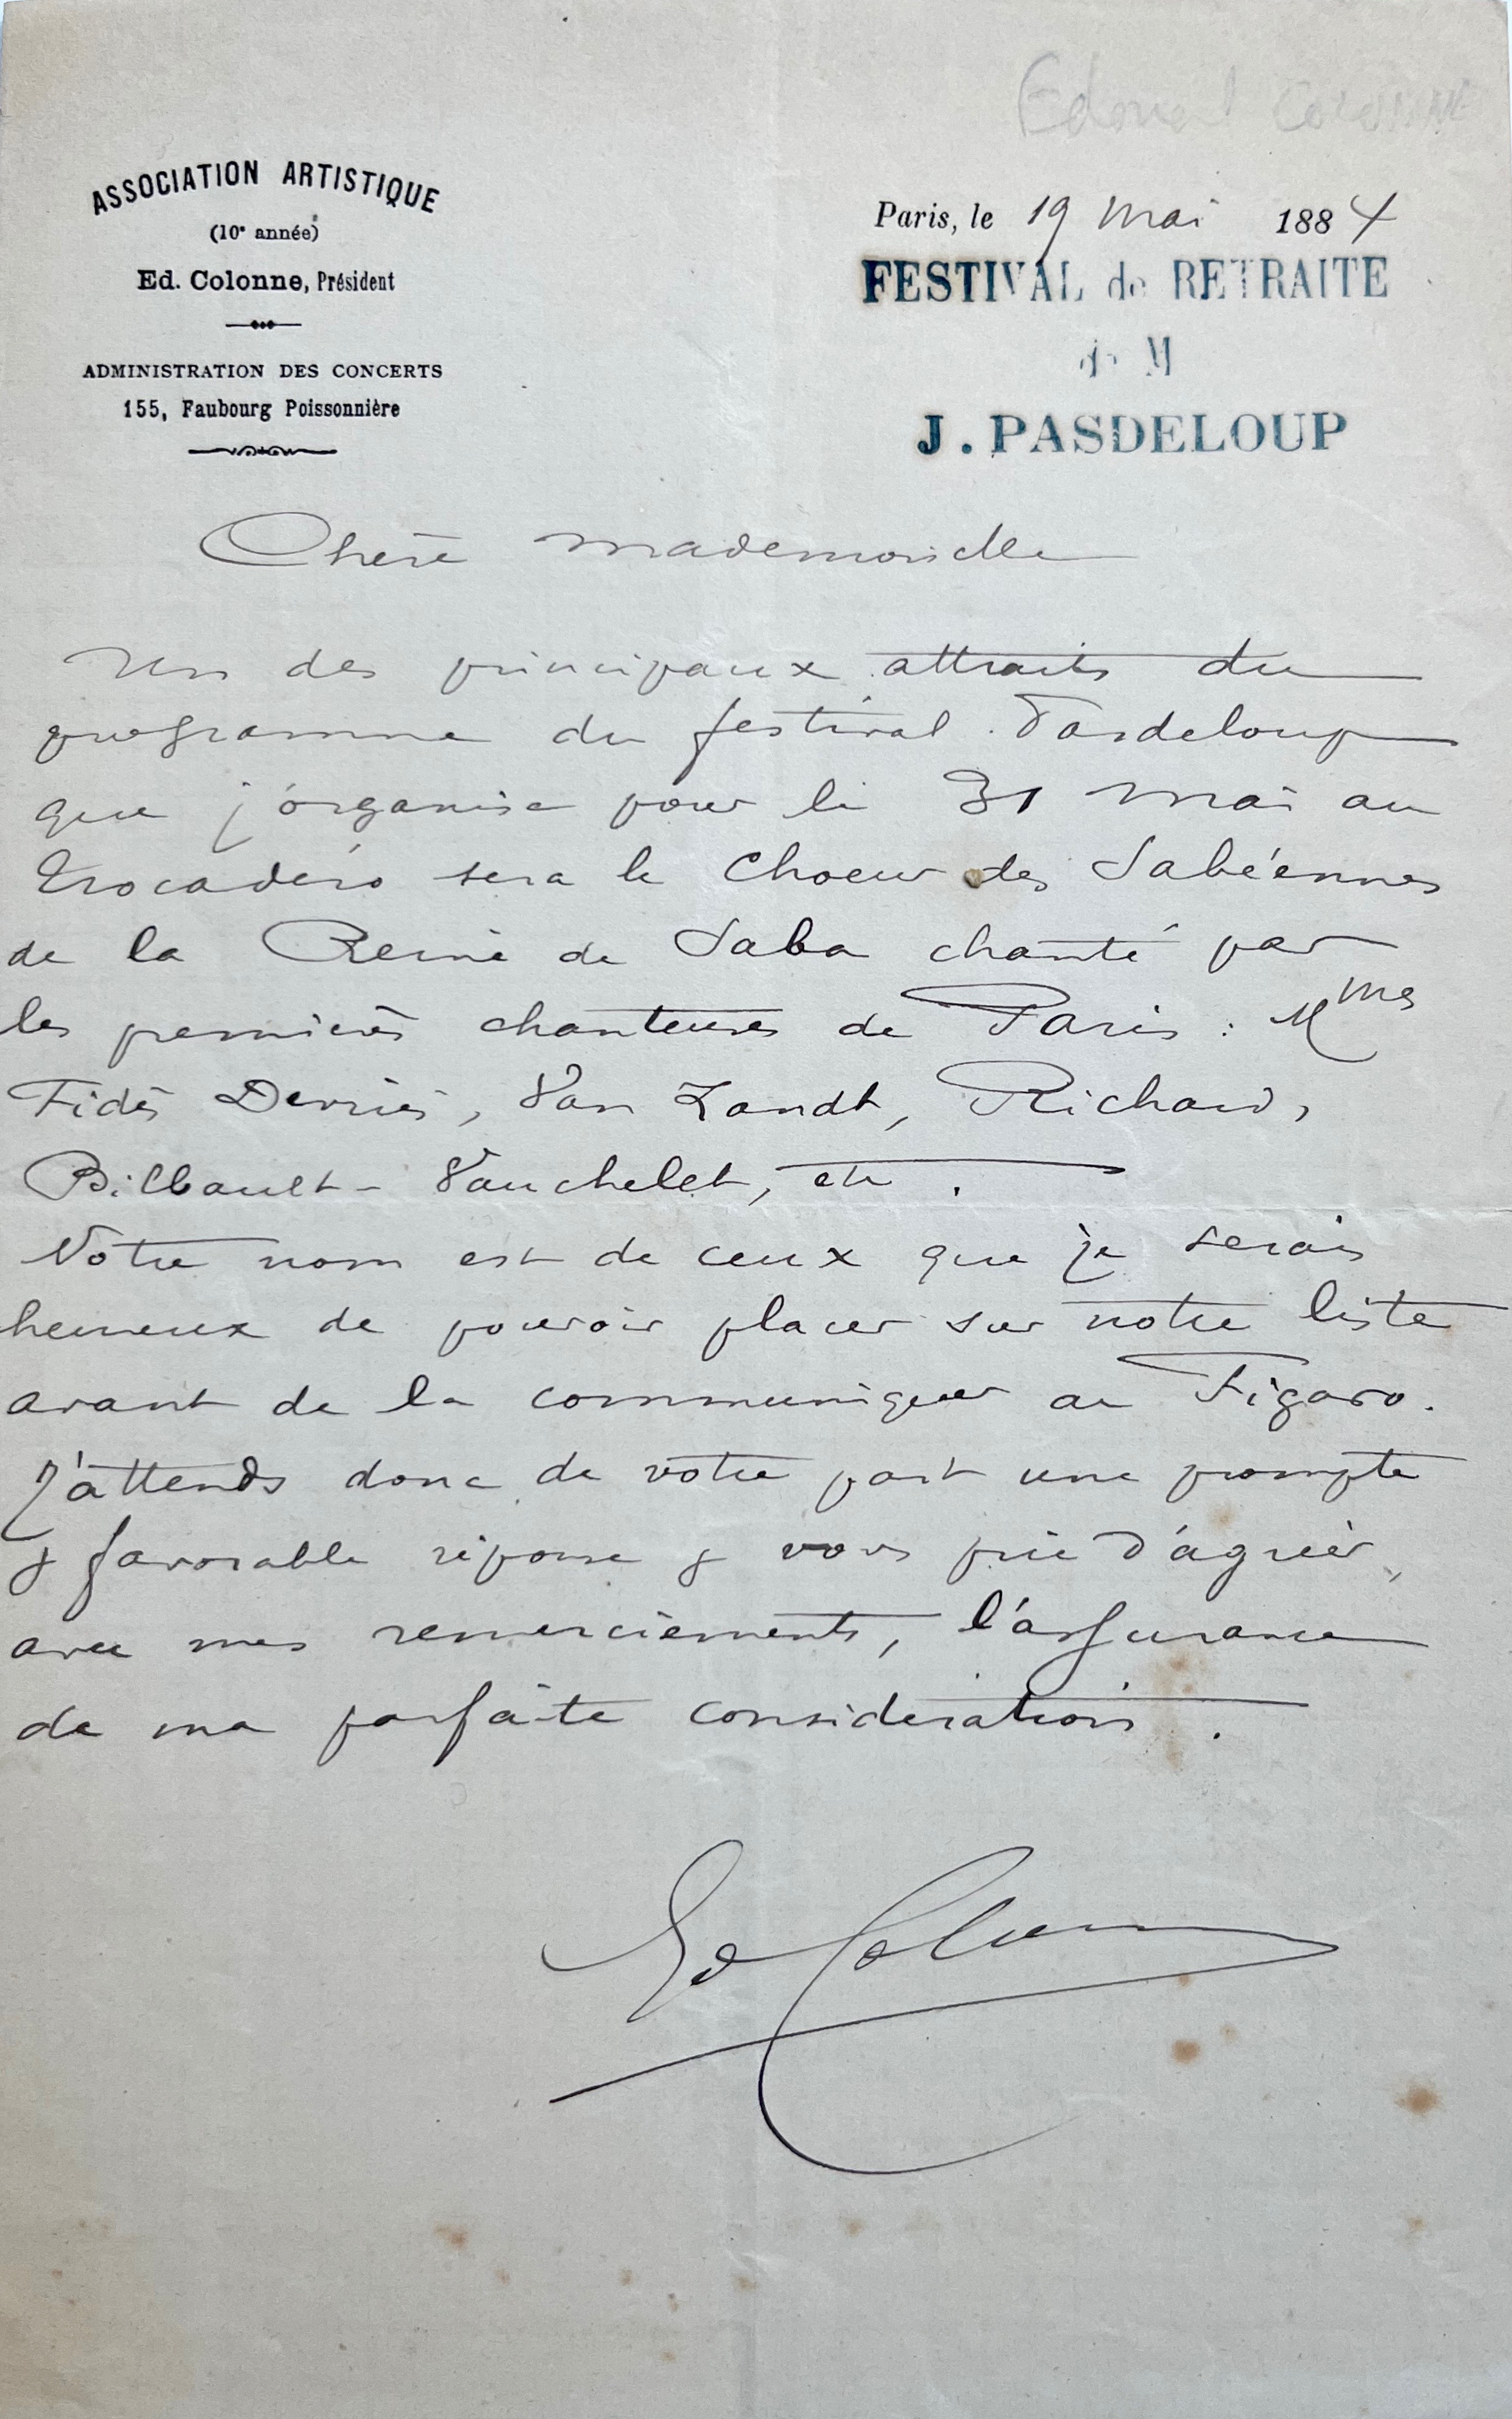 Edouard Colonne
ASSOCIATION ARTISTIQUE
(10e année)
Ed. Colonne, Président
ADMINISTRATION DES CONCERTS
155, Faubourg Poissonnière
Paris, le 19 Mai 1884
FESTIVAL de RETRAITE
de M
J. PASDELOUP
Chère Mademoiselle
Un des principaux attraits du
programme du festival Pasdeloup
que j'organise pour le 31 Mai au
Trocadéro sera le Choeur des Sabéennes
de la Reine de Saba chanté par
les premières chanteuses de Paris : Mmes
Fidès Devriès, Van Zandt, Richard,
Bilbault-Vauchelet, etc.
Votre nom est de ceux que je serais
heureux de pouvoir placer sur notre liste
avant de la communiquer au Figaro.
J'attends donc de votre part une prompte
& favorable réponse & vous prie d'agréer,
avec mes remerciements, l'assurance
de ma parfaite considération.
Ed Colonne